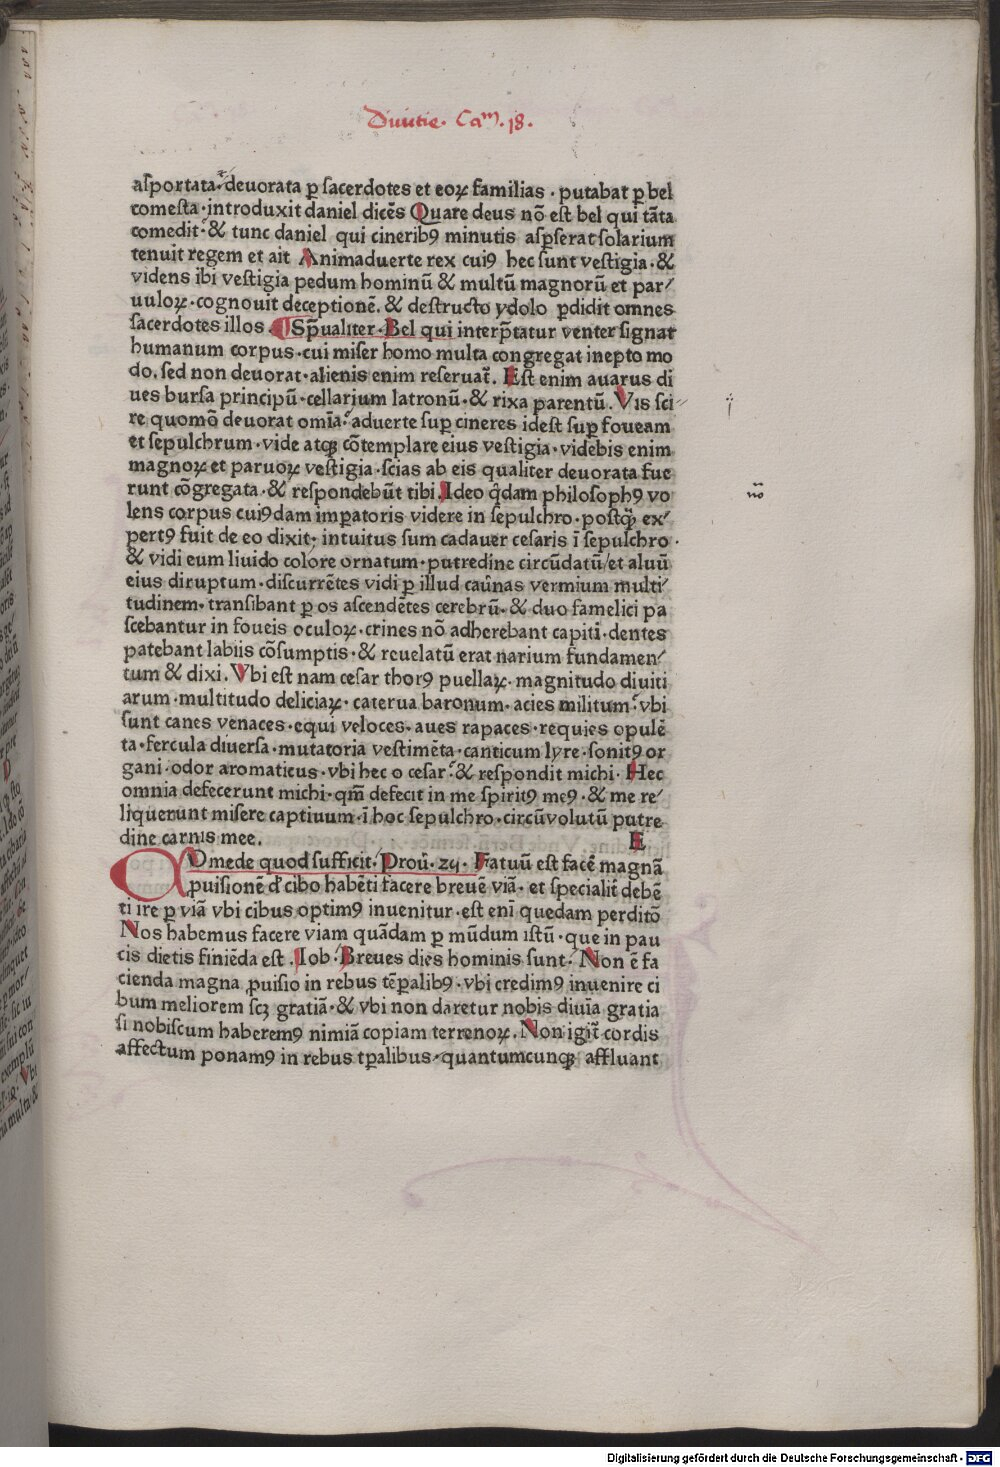 Diuitie. Caᵐ. 18.
aſportata· deuorata ꝑ ſacerdotes et eoꝝ familias · putabat ꝑ bel
comeſta · introduxit daniel dicēs Quare deus nō eſt bel qui tāta
comedit· & tunc daniel qui cineribꝰ minutis aſꝑſerat ſolarium
tenuit regem et ait Animaduerte rex cuiꝰ hec ſunt veſtigia · &
videns ibi veſtigia pedum hominū & multū magnorū et par⸗
uuloꝝ · cognouit deceptionē. & deſtructo ydolo ꝑdidit omnes
ſacerdotes illos . Sp̄ualiter · Bel qui interp̄tatur venter ſignat
humanum corpus · cui miſer homo multa congregat inepto mo
do. ſed non deuorat · alienis enim reſeruat̄. Eſt enim auarus di
ues burſa principū · cellarium latronū · & rixa parentū. Vis ſci⸗
re quomō deuorat omīa· aduerte ſuꝑ cineres ideſt ſuꝑ foueam
et ſepulchrum · vide atqꝫ cōtemplare eius veſtigia · videbis enim
magnoꝝ et paruoꝝ veſtigia · ſcias ab eis qualiter deuorata fue
runt cōgregata · & reſpondebūt tibi. Ideo q̇dam philoſophꝰ vo
lens corpus cuiꝰdam imꝑatoris videre in ſepulchro · poſtq̄ȝ ex⸗
pertꝰ fuit de eo dixit· intuitus ſum cadauer ceſaris ī ſepulchro ·
& vidi eum liuido colore ornatum · putredine circūdatū/et aluū
eius diruptum · diſcurrētes vidi ꝑ illud cau̇nas vermium multi⸗
tudinem · tranſibant ꝑ os aſcendētes cerebrū · & duo famelici pa
ſcebantur in foueis oculoꝝ · crines nō adherebant capiti · dentes
patebant labiis cōſumptis · & reuelatū erat narium fundamen⸗
tum & dixi. Vbi eſt nam ceſar thorꝰ puellaꝝ · magnitudo diuiti
arum · multitudo deliciaꝝ · caterua baronum · acies militum· vbi
ſunt canes venaces · equi veloces · aues rapaces · requies opulē
ta · fercula diuerſa · mutatoria veſtimēta · canticum lyre · ſonitꝰ or
gani · odor aromaticus · vbi hec o ceſar· & reſpondit michi · Hec
omnia defecerunt michi · qm̄ defecit in me ſpiritꝰ meꝰ · & me re⸗
liquerunt miſere captiuum · ī hoc ſepulchro · circūvolutū putre
dine carnis mee. E
COmede quod ſufficit · Prou̇. zy · Fatuū eſt facē magnā
ꝓuiſionē d̄ cibo habēti facere breuē viā · et ſpecialit̄ debē
ti ire ꝑ viā vbi cibus optimꝰ inuenitur · eſt enī quedam perditō
Nos habemus facere viam quādam ꝑ mūdum iſtū · que in pau
cis dietis finiēda eſt . Iob · Breues dies hominis ſunt · Non ē fa
cienda magna ꝓuiſio in rebus tēꝑalibꝰ · vbi credimꝰ inuenire ci
bum meliorem ſcꝫ gratiā · & vbi non daretur nobis diuīa gratia
ſi nobiſcum haberemꝰ nimiā copiam terrenoꝝ. Non igit̄ cordis
affectum ponamꝰ in rebus tꝑalibus · quantumcunqꝫ affluant
Digitalisierung gefördert durch die Deutsche Forschungsgemeinschaft - DFG